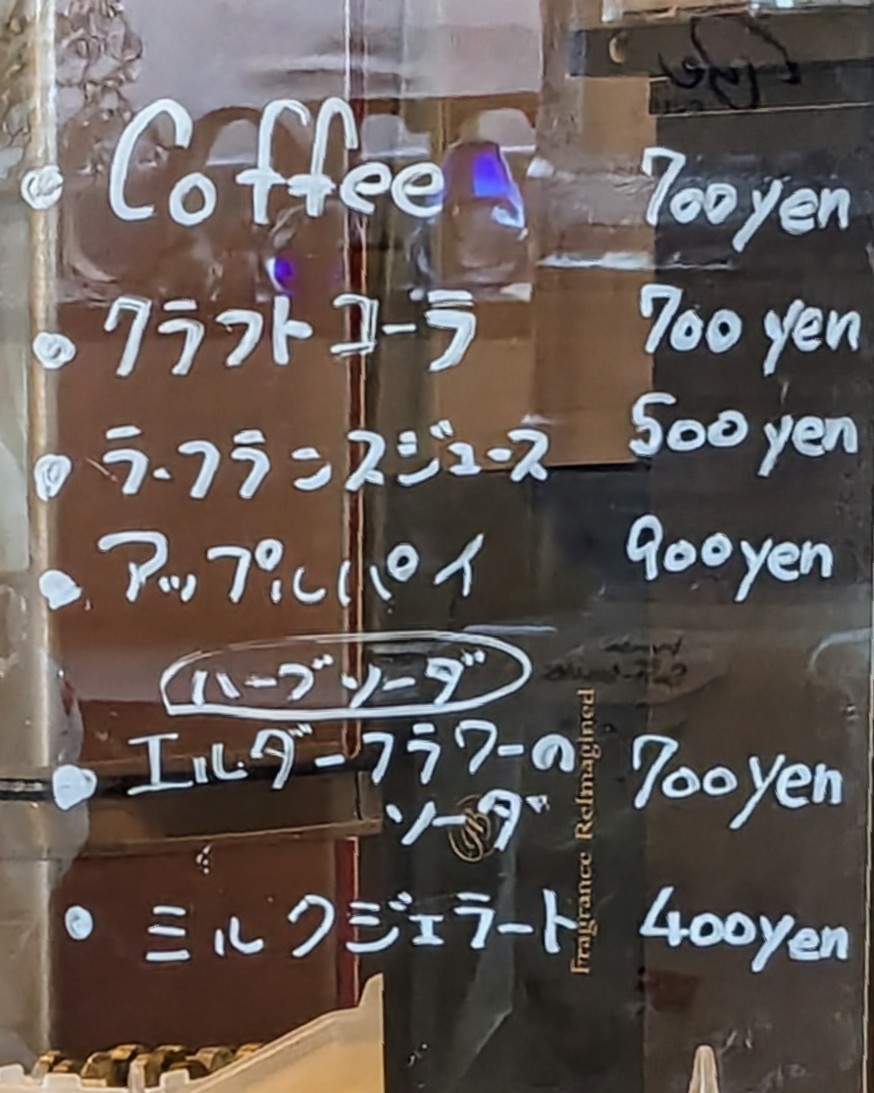 Coffee 700yen
クラフトコーラ 700 yen
ラ・フランスジュース 500 yen
アップルパイ 900yen
ハーブソーダ
エルダーフラワーの 700yen
ソーダ
ミルクジェラート 400yen
Fragrance ReImagined